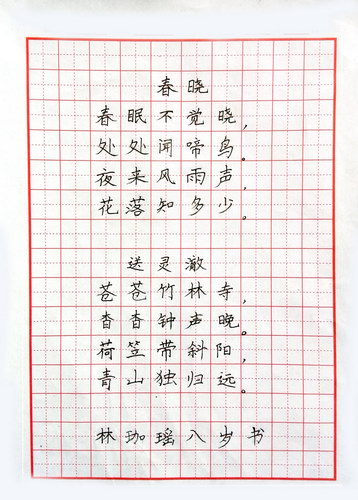 春晓
春眠不觉晓，
处处闻啼鸟。
夜来风雨声，
花落知多少。
送灵澈
苍苍竹林寺，
杳杳钟声晚。
荷笠带斜阳，
青山独归远。
林珈瑶八岁书